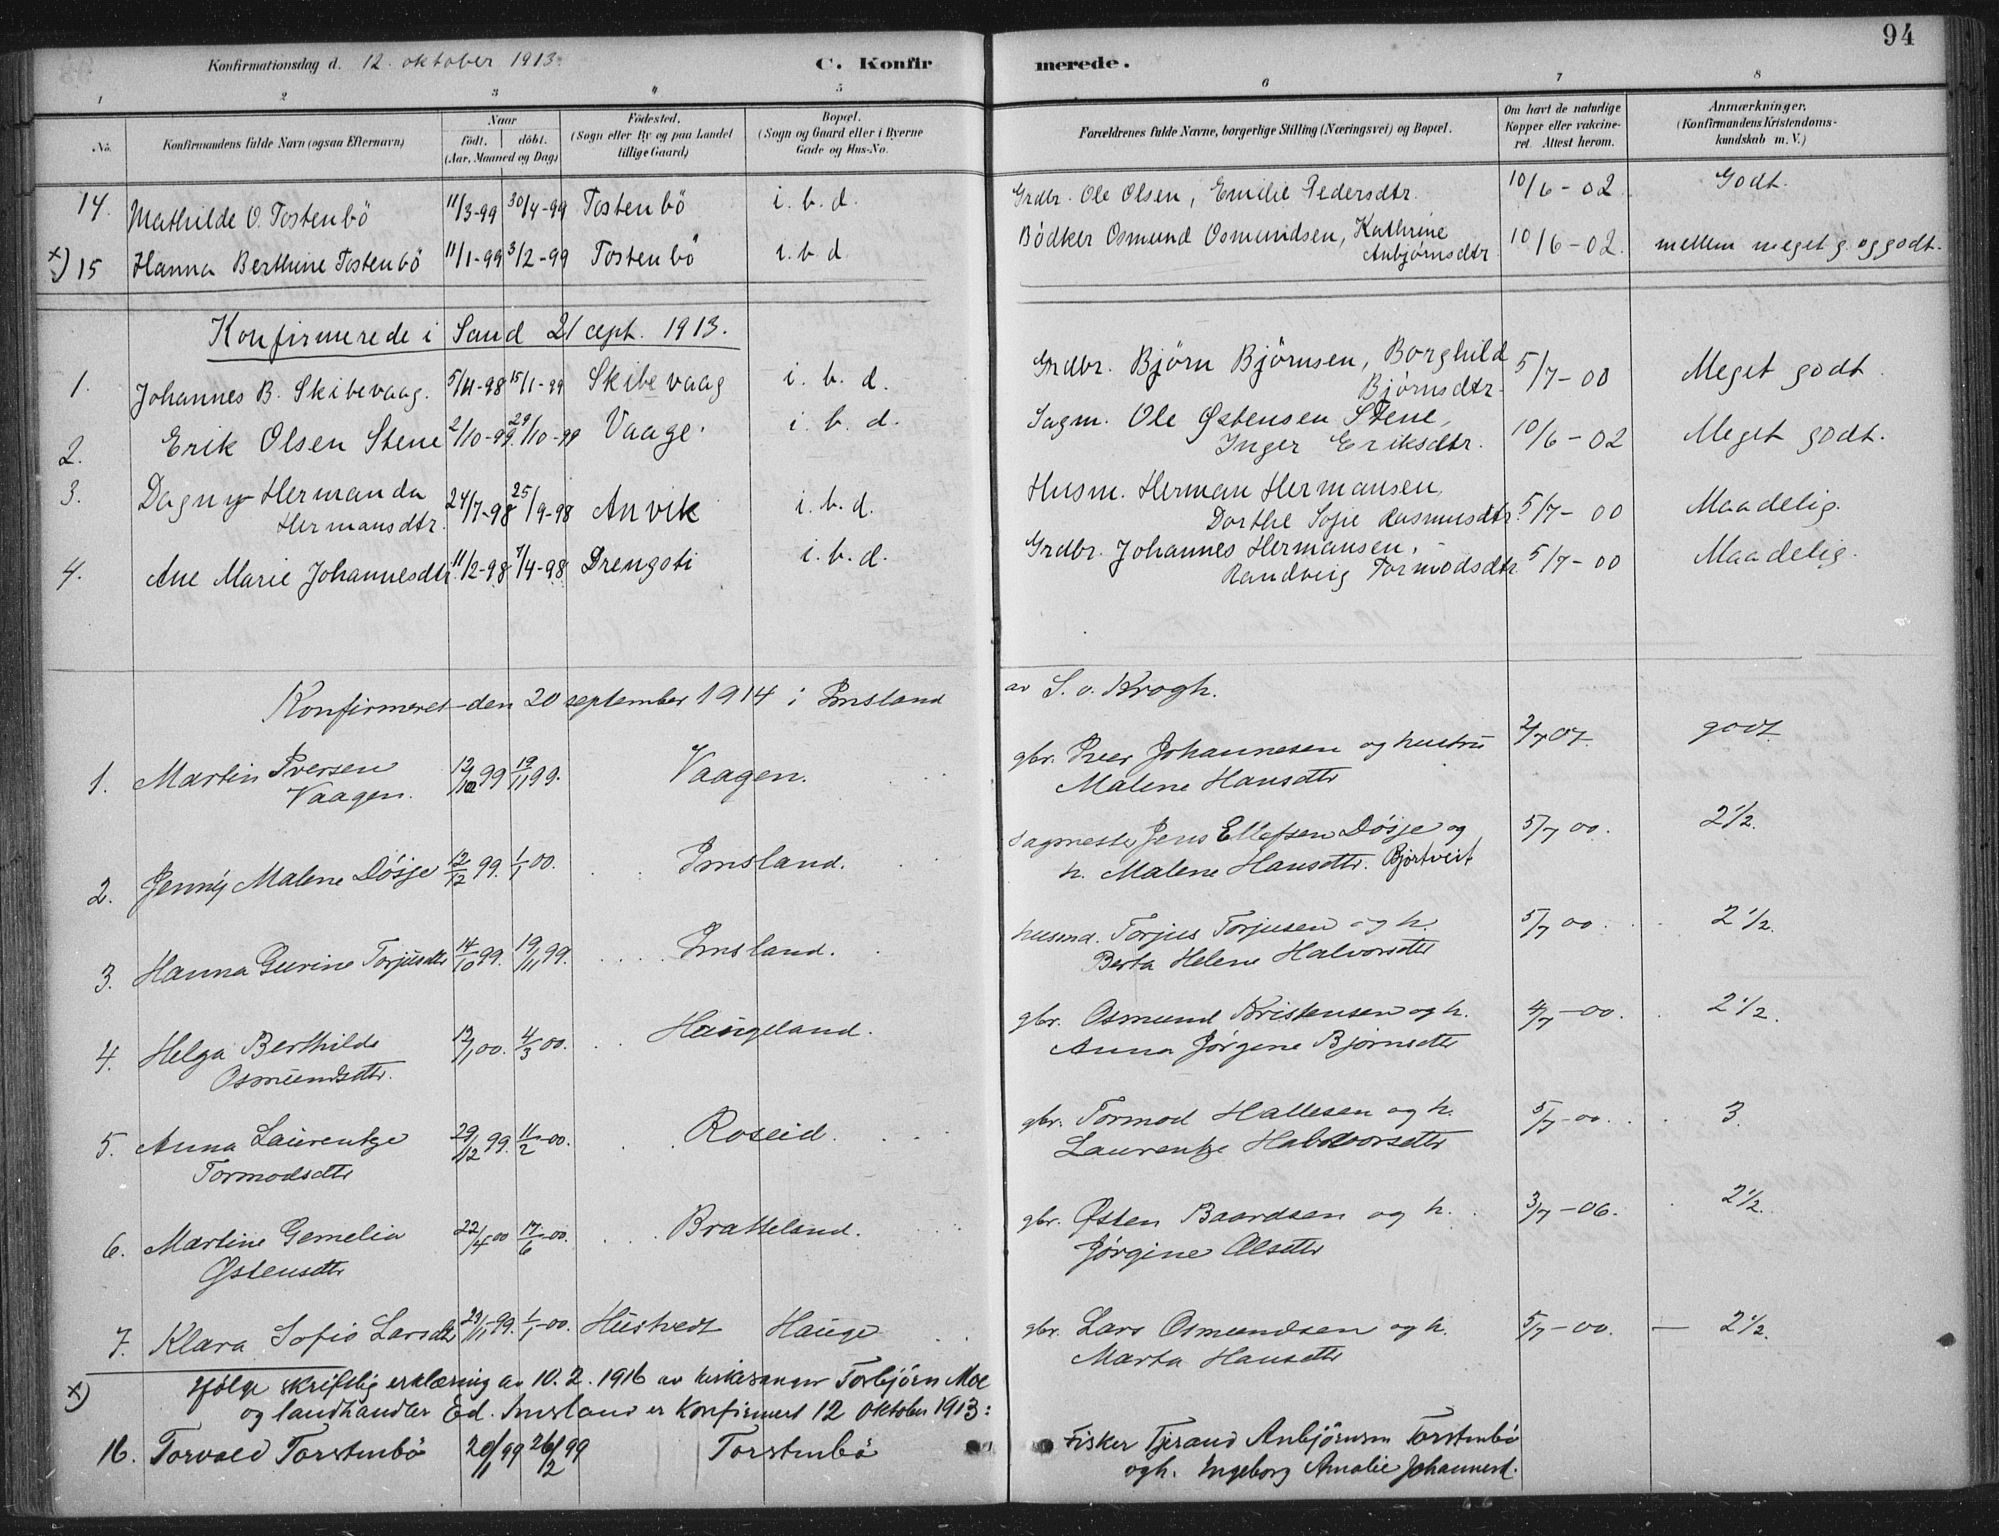 94
Konfirmationsdag d. 12. oktober 1913. C. Konfirmerede.
1 2 3 4 5 6 7 8
No. Konfirmandens fulde Navn (ogsaa Efternavn) Naar født. døbt. (Aar, Maaned og Dag) Fødested. (Sogn eller By og paa Landet tillige Gaard) Bopæl. (Sogn og Gaard eller i Byerne Gade og Hus-No. Forældrenes fulde Navne, borgerlige Stilling (Næringsvei) og Bopæl. Om havt de naturlige Kopper eller vakcineret. Attest herom. Anmærkninger. (Konfirmandens Kristendomskundskab m. V.)
14. Mathilde O. Tostenbö 11/3-99 30/4-99 Tostenbö i. b. d. Grdbr. Ole Olsen, Emilie Pedersdtr. 10/6-02 Godt.
x) 15 Hanna Berthine Tostenbö 11/1-99 3/2-99 Tostenbö i. b. d. Bödker Osmund Osmundsen, Kathrine Anbjørnsdtr. 10/6-02. mellem meget g. og godt.
Konfirmerede i Sand 21 sept. 1913.
1. Johannes B. Skibevaag. 5/11-98 15/1-99 Skibevaag i. b. d. Grdbr. Björn Björnsen, Borghild Bjørnsdtr. 5/7-00 Meget godt.
2. Erik Olsen Stene 2/10-99. 29/10-99 Vaage. i. b. d. Sagm. Ole Østensen Stene, Inger Eriksdtr. 10/6-02 Meget godt.
3. Dagny Hermanda Hermansdtr. 24/7-98 25/9-98 Anvik i. b. d. Husm. Herman Hermansen, Dorthe Sofie Rasmusdtr. 5/7-00 Maadelig.
4. Ane Marie Johannesdtr. 11/2-98 7/4-98 Drengsti i. b. d. Grdbr. Johannes Hermansen, Randveig Tormodsdtr. 5/7-00 Maadelig.
Konfirmeret den 20 september 1914 i Imsland av S. v. Krogh.
1. Martin Iversen Vaagen. 12/10 99 19/11 99. Vaagen. gbr. Iver Johannesen og hustru Malene Hansdtr 2/7 07. godt
2. Jenny Malene Døsje 12/12 99. 1/1 00. Imsland. Sagmester Jens Ellefsen Døsje og h. Malene Hansdtr. Bjortveit 5/7 00. 2 1/2.
3. Hanna Gurine Torjusdtr 14/10 99. 19/11 99. Imsland. husmd. Torjus Torjusen og h. Berta Helene Halvorsdtr 5/7 00. 2 1/2.
4. Helga Berthilde Osmundsdtr. 12/1 00. 4/3 00. Haugeland. gbr. Osmund Kristensen og h. Anna Jørgine Bjørnsdtr 4/7-00. 2 1/2.
5. Anna Laurentze Tormodsdtr 29/12 99. 11/2-00. Roseid. gbr. Tormod Hallesen og h. Laurentze Halvorsdtr 5/7-00. 3.
6. Martine Gemelia Østensdtr 22/4 00 17/6-00. Bratteland. gbr. Østen Baardsen og h. Jørgine Olsdtr 3/7-06. 2 1/2.
7. Klara Sofie Larsdtr 23/11-99. 1/1-00. Hustvedt Hauge gbr. Lars Osmundsen og h. Marta Hansdtr 5/7-00. — 2 1/2.
x) Ifølge skriftlig erklæring av 10. 2. 1916 av kirkesanger Torbjørn Moe
og landhandler Ed. Imsland er konfirmert 12 oktober 1913:
16. Torvald Torstenbö 20/11 99 26/12 99 Torstenbö Fisker Tjerand Anbjörnsen Torstenbö og h. Ingeborg Amalie Johannesd.